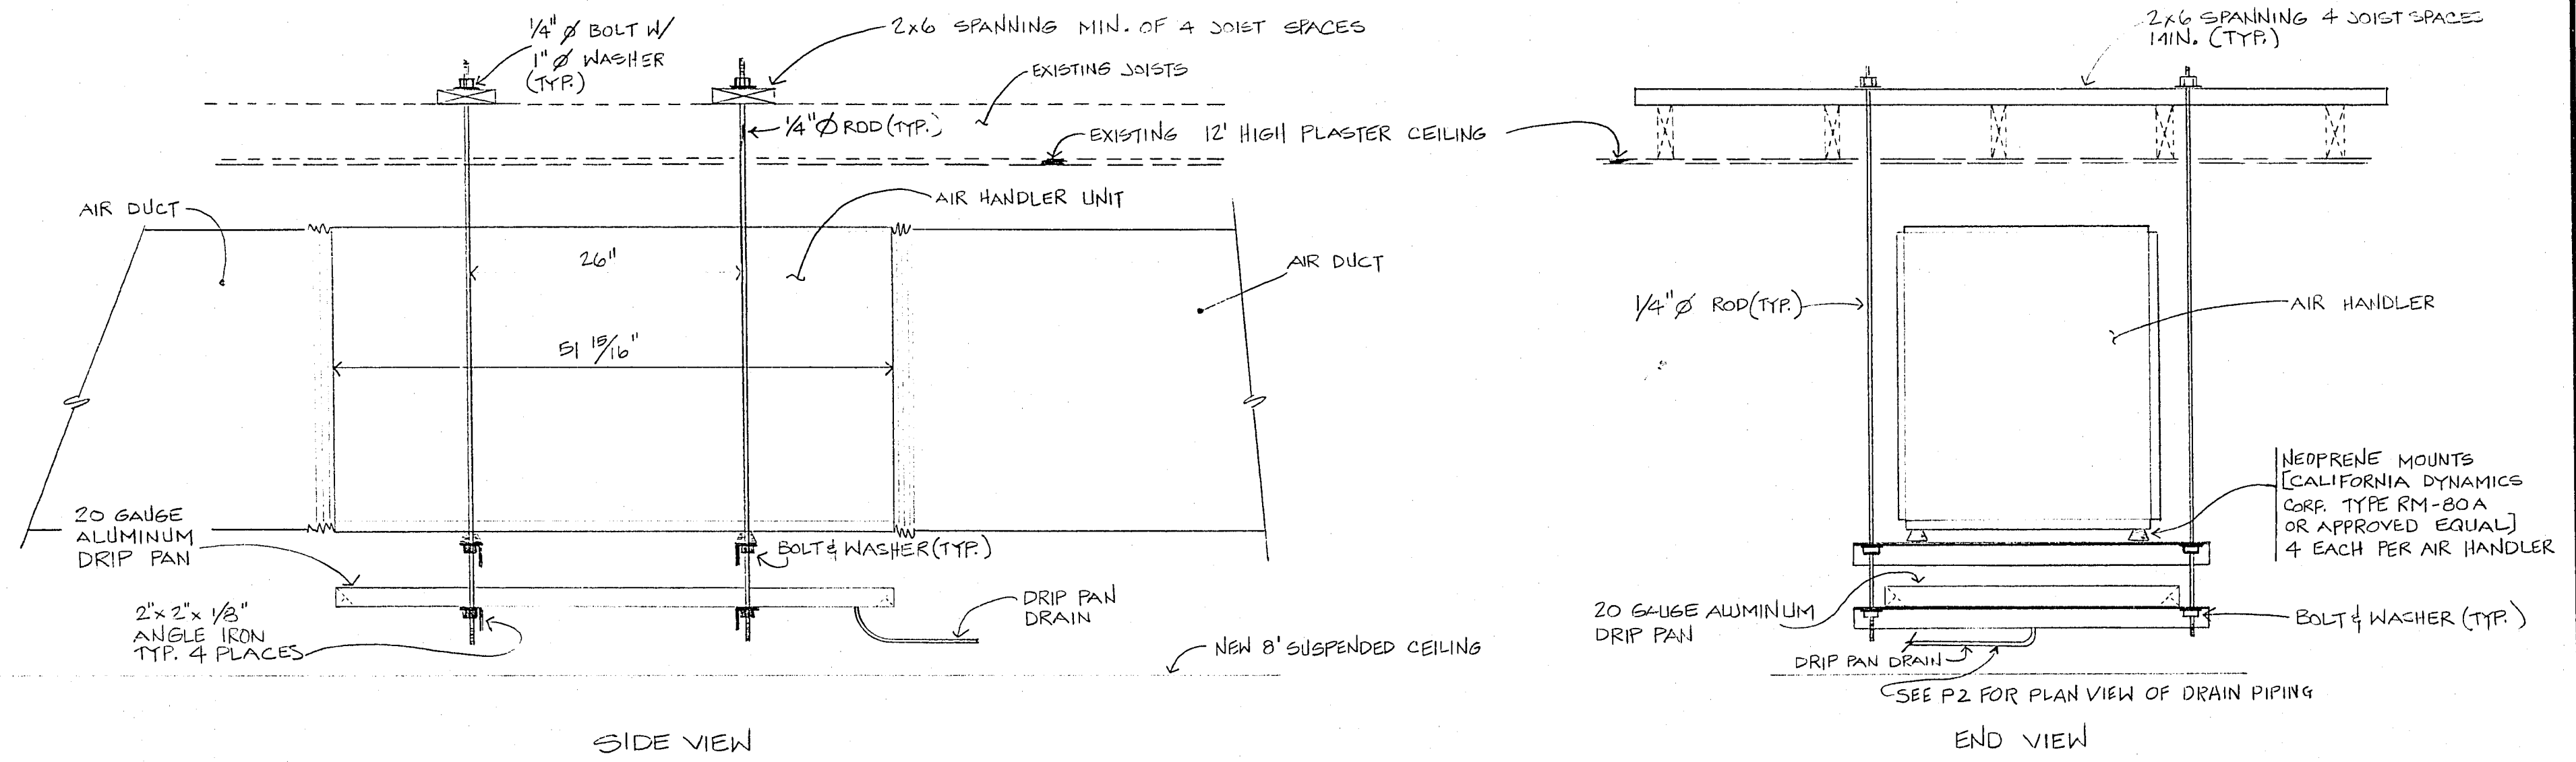 1/4" Ø BOLT W/
1" Ø WASHER
(TYP.)
2x6 SPANNING MIN. OF 4 JOIST SPACES
EXISTING JOISTS
1/4" Ø ROD (TYP.)
EXISTING 12' HIGH PLASTER CEILING
AIR DUCT
AIR HANDLER UNIT
26"
AIR DUCT
51 15/16"
20 GAUGE
ALUMINUM
DRIP PAN
BOLT & WASHER (TYP.)
2" x 2" x 1/8"
ANGLE IRON
TYP. 4 PLACES
DRIP PAN
DRAIN
NEW 8' SUSPENDED CEILING
SIDE VIEW
2x6 SPANNING 4 JOIST SPACES
MIN. (TYP.)
1/4" Ø ROD (TYP.)
AIR HANDLER
NEOPRENE MOUNTS
[CALIFORNIA DYNAMICS
CORP. TYPE RM-80A
OR APPROVED EQUAL]
4 EACH PER AIR HANDLER
20 GAUGE ALUMINUM
DRIP PAN
BOLT & WASHER (TYP.)
DRIP PAN DRAIN
SEE P2 FOR PLAN VIEW OF DRAIN PIPING
END VIEW